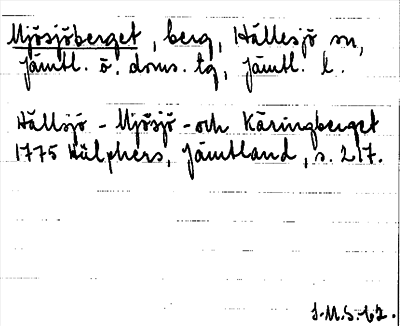 Mjösjöberget, berg, Hällesjö sn,
Jämtl. ö. doms. tg, Jämtl. l.
Hällsjö - Mjösjö - och Käringberget
1775 Hülphers, Jämtland, s. 217.
J.M.S. 62.